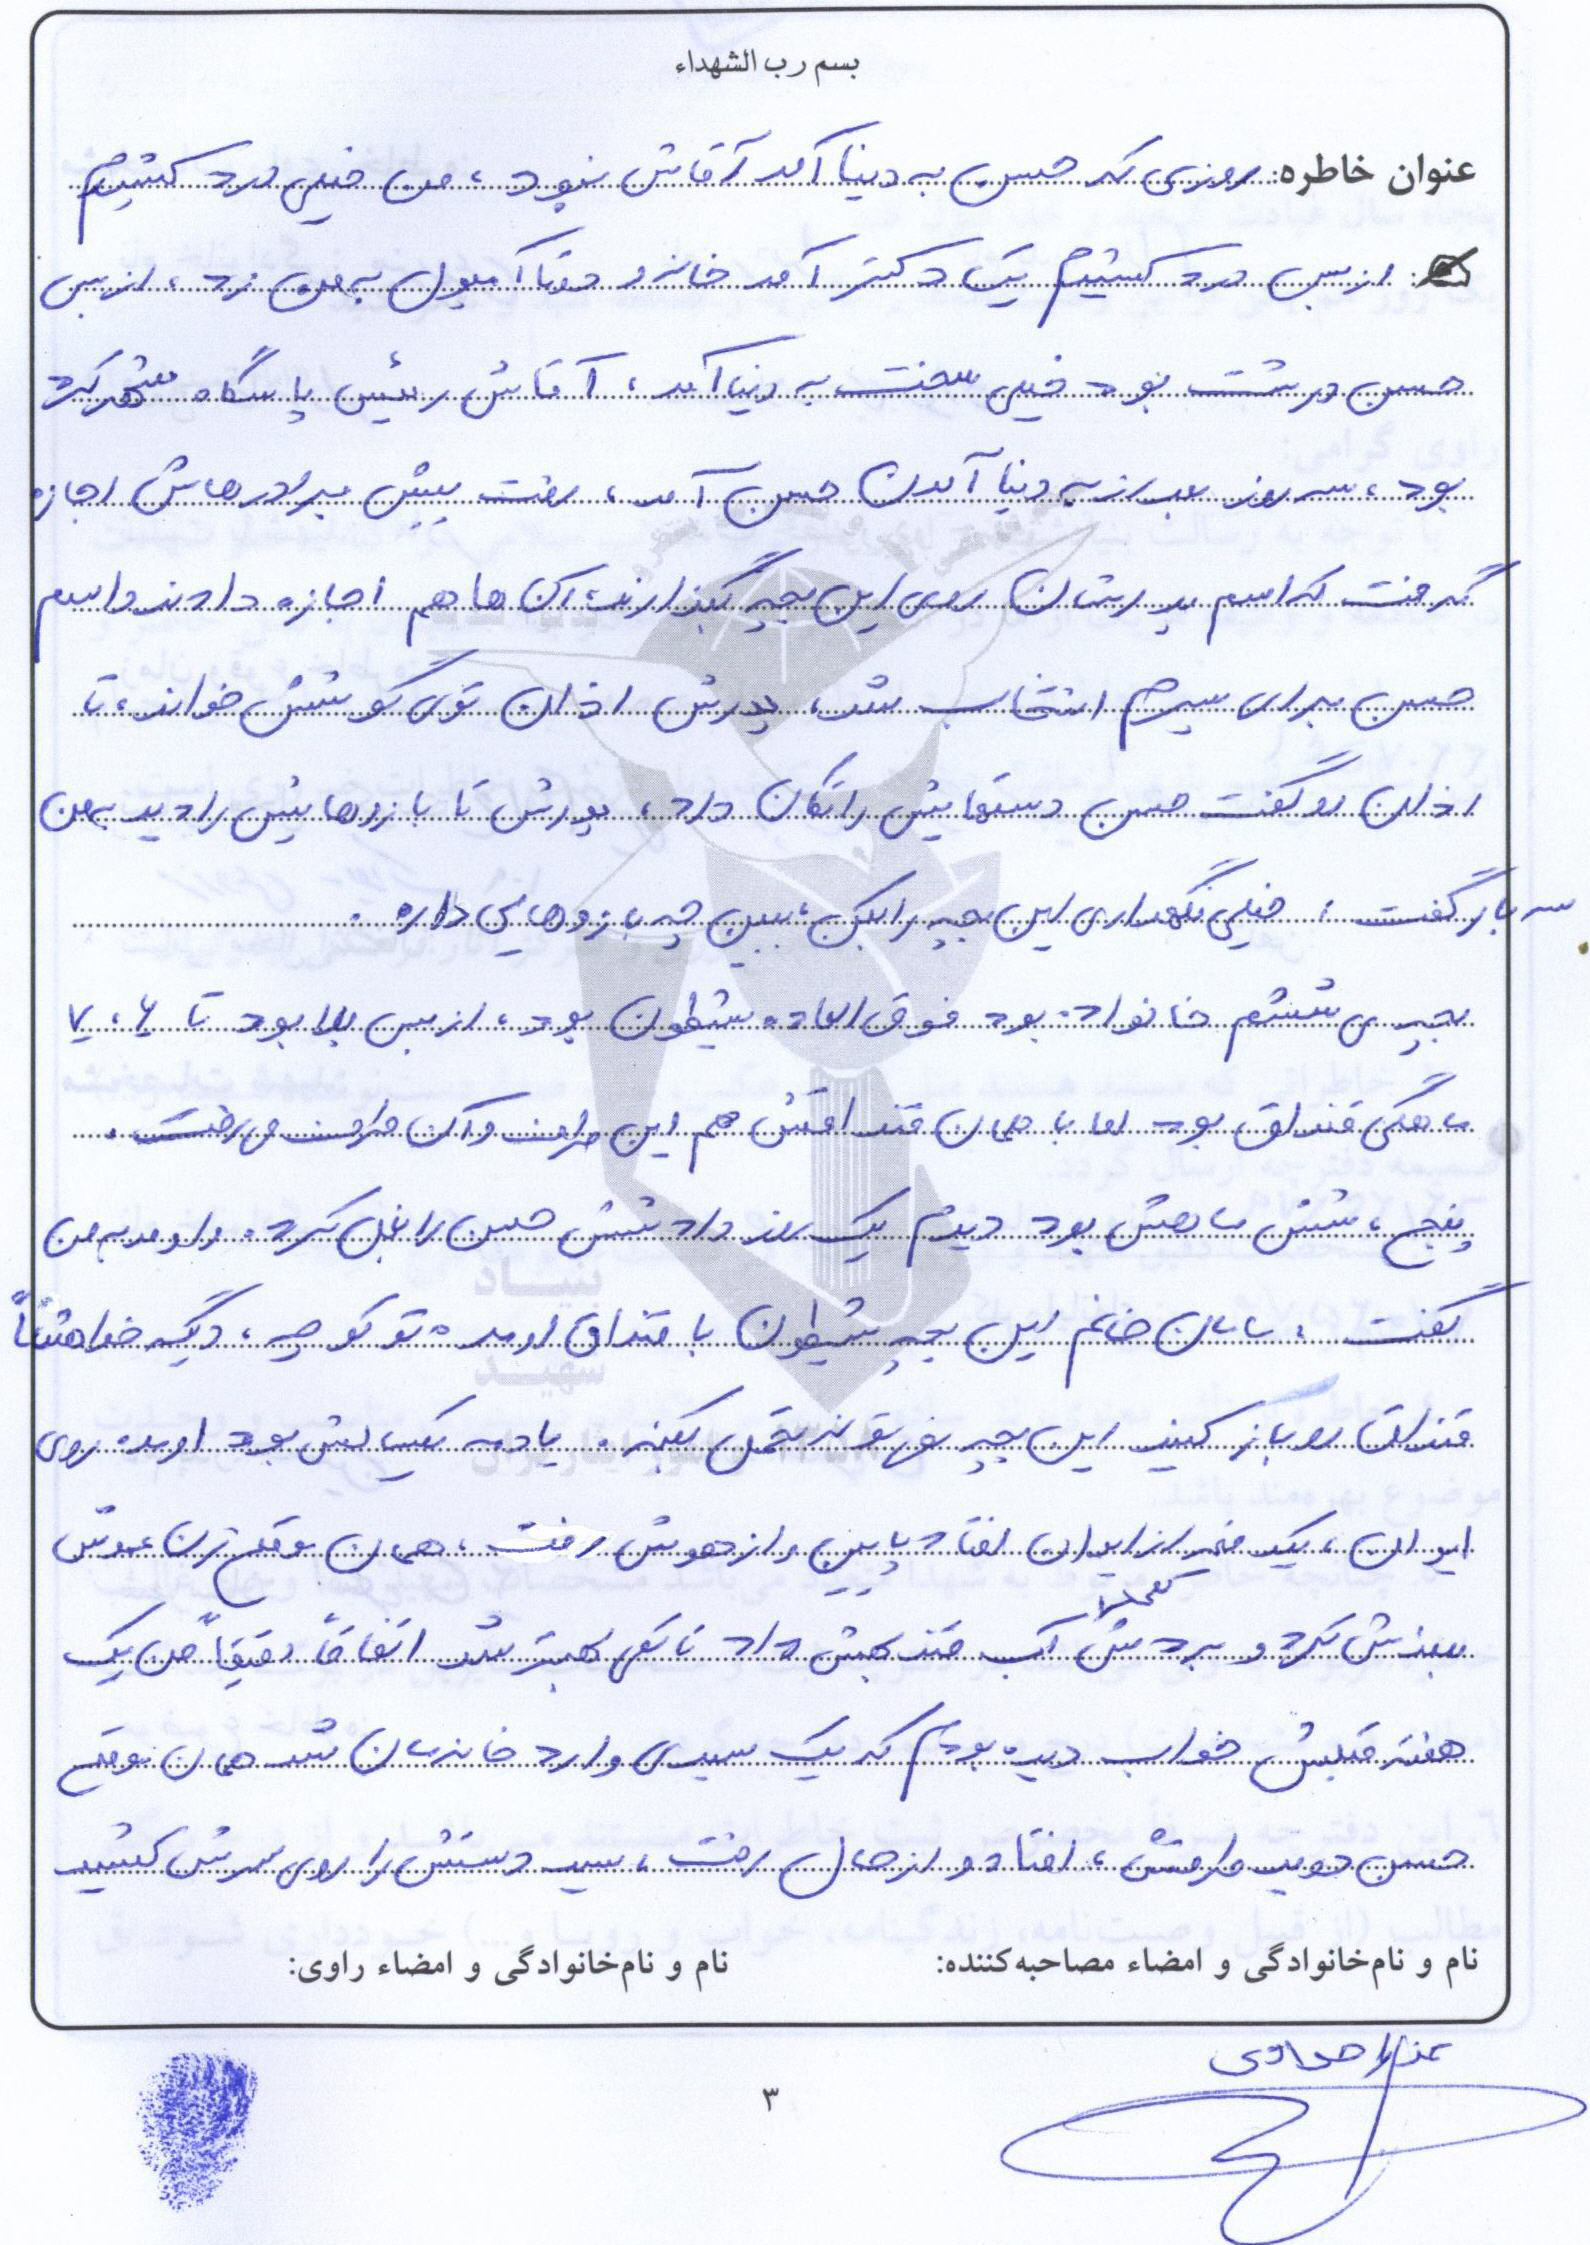 بسم رب الشهداء
عنوان خاطره: روزی که حسن به دنیا آمد آقاش نبود، من خیلی درد کشیدم
از بس درد کشیدم یک دکتر آمد خانه و دوتا آمپول به من زد، از بس
حسن درشت بود خیلی سخت به دنیا آمد، آقاش رئیس پاسگاه شهرکرد
بود، سه روز بعد از به دنیا آمدن حسن آمد، رفت پیش برادرهاش اجازه
گرفت که اسم پدرشان روی این بچه بگذارند، آن ها هم اجازه دادند و اسم
حسن برای پسرم انتخاب شد، پدرش اذان توی گوشش خواند، تا
اذان رو گفت حسن دستهایش را تکان داد، پدرش تا بازوهایش را دید به من
سه بار گفت: خیلی نگهداری این بچه را بکن، ببین چه بازوهایی داره.
بچه ی ششم خانواده بود فوق العاده شیطون بود، از بس بلا بود تا ۶، ۷
ماهگی قنداق بود اما با همان قنداقش هم این طرف و آن طرف می رفت.
پنج، شش ماهش بود دیدم یک روز داداشش حسن را بغل کرده و اومد به من
گفت: مامان خانم این بچه شیطون با قنداق اومده تو کوچه، دیگه خواهشاً
قنداق رو باز کنید این بچه نمی تونه تحمل بکنه. یادمه یکسالش بود اومده روی
ایوان، یک دفعه از ایوان افتاد پایین و از هوش رفت، همان موقع زن عموش
بلندش کرد و بردش آب قند بهش داد تا کمی بهتر شد اتفاقاً دقیقاً من یک
هفته قبلش خواب دیده بودم که یک سیدی وارد خانه مان شد همان موقع
حسن دوید طرفش، افتاد و از حال رفت، سید دستش را روی سرش کشید
نام و نام‌خانوادگی و امضاء مصاحبه‌کننده:
نام و نام‌خانوادگی و امضاء راوی:
۳